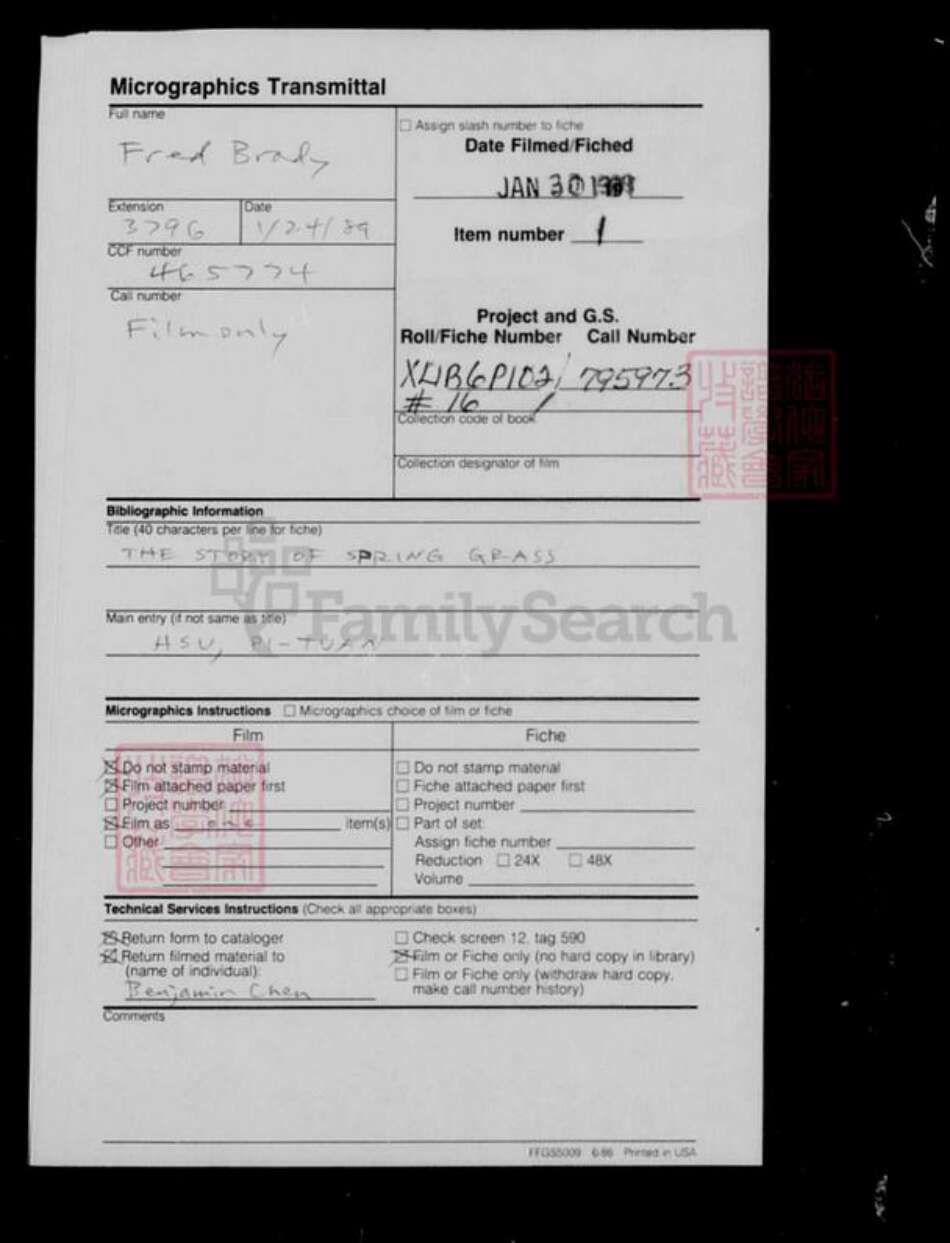 Micrographics Transmittal
Full name
Fred Brady
Extension
3796
Date
1/24/89
CCF number
465774
Call number
Film only
☐ Assign slash number to fiche
Date Filmed/Fiched
JAN 30 1989
Item number 1
Project and G.S.
Roll/Fiche Number Call Number
XLIB6P102/ 795973
# 16
Collection code of book
Collection designator of film
Bibliographic Information
Title (40 characters per line for fiche)
THE STORY OF SPRING GRASS
FamilySearch
Main entry (if not same as title)
HSU, PI-TUAN
Micrographics Instructions ☐ Micrographics choice of film or fiche
Film
☒ Do not stamp material
☒ Film attached paper first
☐ Project number
☒ Film as one item(s)
☐ Other
Fiche
☐ Do not stamp material
☐ Fiche attached paper first
☐ Project number
☐ Part of set:
Assign fiche number
Reduction ☐ 24X ☐ 48X
Volume
Technical Services Instructions (Check all appropriate boxes)
☒ Return form to cataloger
☒ Return filmed material to
(name of individual):
Benjamin Chen
☐ Check screen 12, tag 590
☒ Film or Fiche only (no hard copy in library)
☐ Film or Fiche only (withdraw hard copy,
make call number history)
Comments
FFGS5009 6-86 Printed in USA